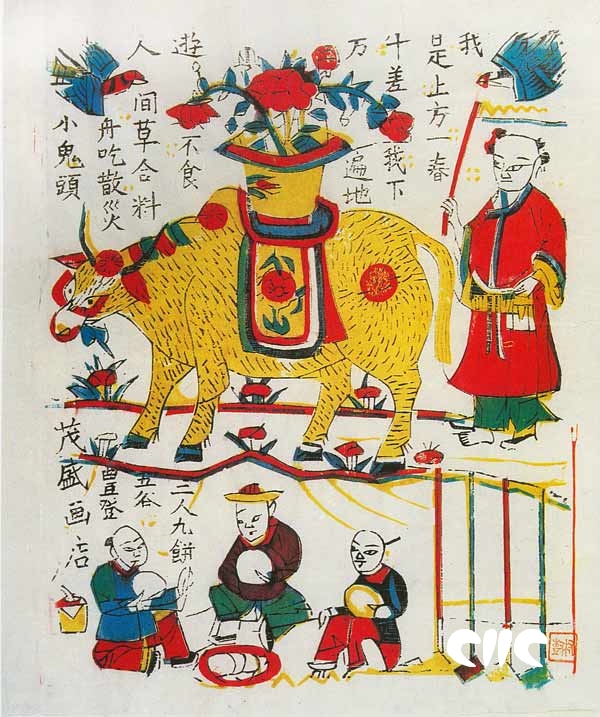 我
是上方一春
牛差我下
万遍地
遊不食
人间草合料
舟吃散災
小鬼頭
二人九餅
五谷
豊登
茂盛画店